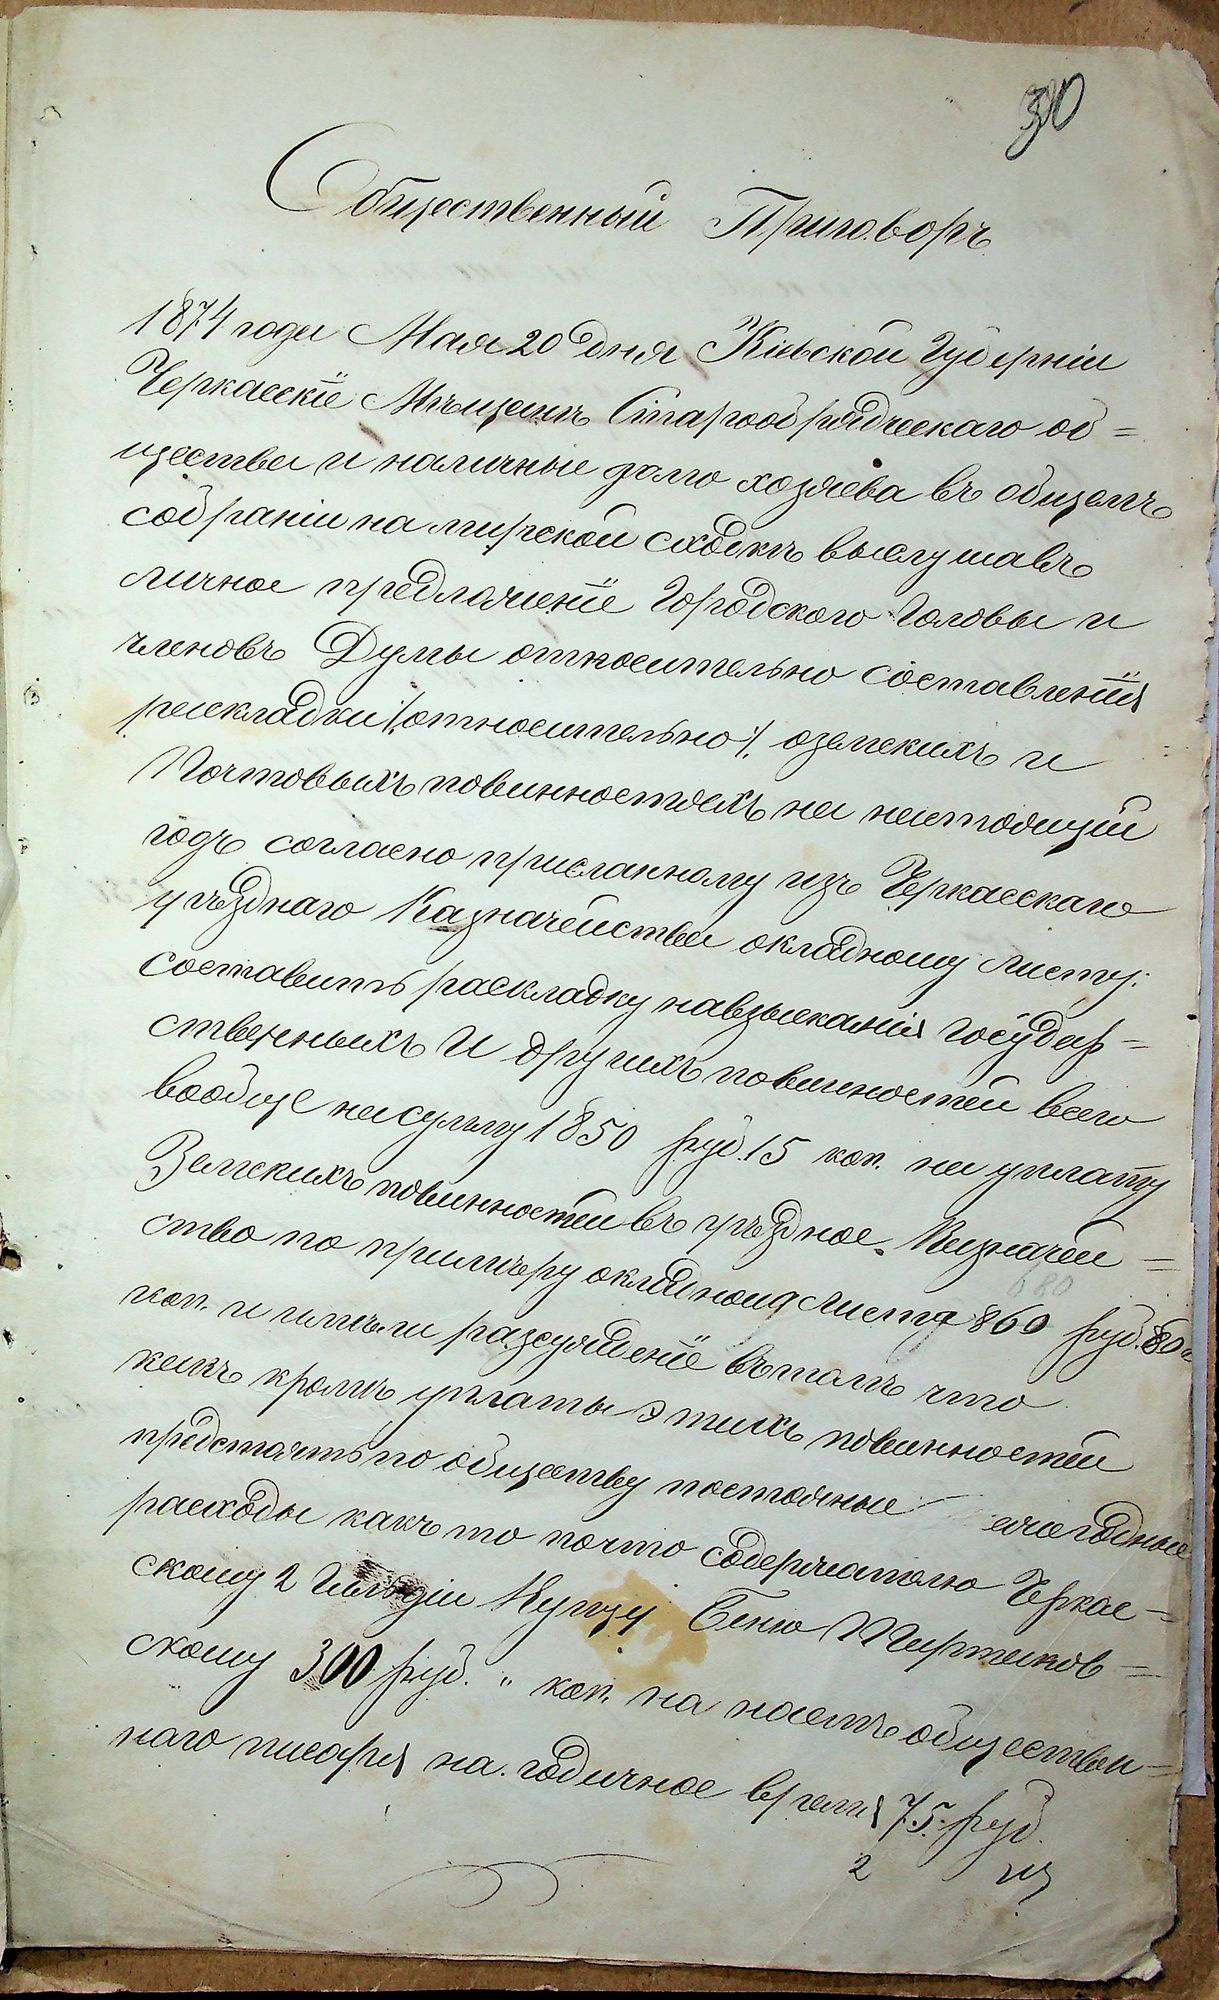 30
Общественный Приговоръ
1874 года Мая 20 дня Кіевской Губерніи
Черкасскіе Мѣщане Старообрядческаго об=
щества и наличные домо хозяева въ общемъ
собраніи на мирской сходкѣ выслушавъ
личное предложеніе Городского Головы и
членовъ Думы относительно составленія
раскладки /:относительно:/ оземскихъ и
Почтовыхъ повинностяхъ на настоящій
годъ согласно присланному изъ Черкасскаго
уѣзднаго Казначейства окладному листу:
составить раскладку на взысканія государ=
ственныхъ и другихъ повинностей всего
вообще на сумму 1850 руб. 15 коп. на уплату
Земскихъ повинностей въ уѣздное Казначей=
ство по примѣру окладнаго листа 860 руб. 80
680
коп. и имѣли разсужденіе въ томъ что
какъ кромѣ уплаты этихъ повинностей
предстоитъ по обществу постоянные ежегодные
расходы какъ то почто содержателю Черкас=
скому 2 Гильдіи Купцу Беню
скому 300 руб. " коп. на наемъ обществен=
наго писаря на годичное время 75 руб.
2 из